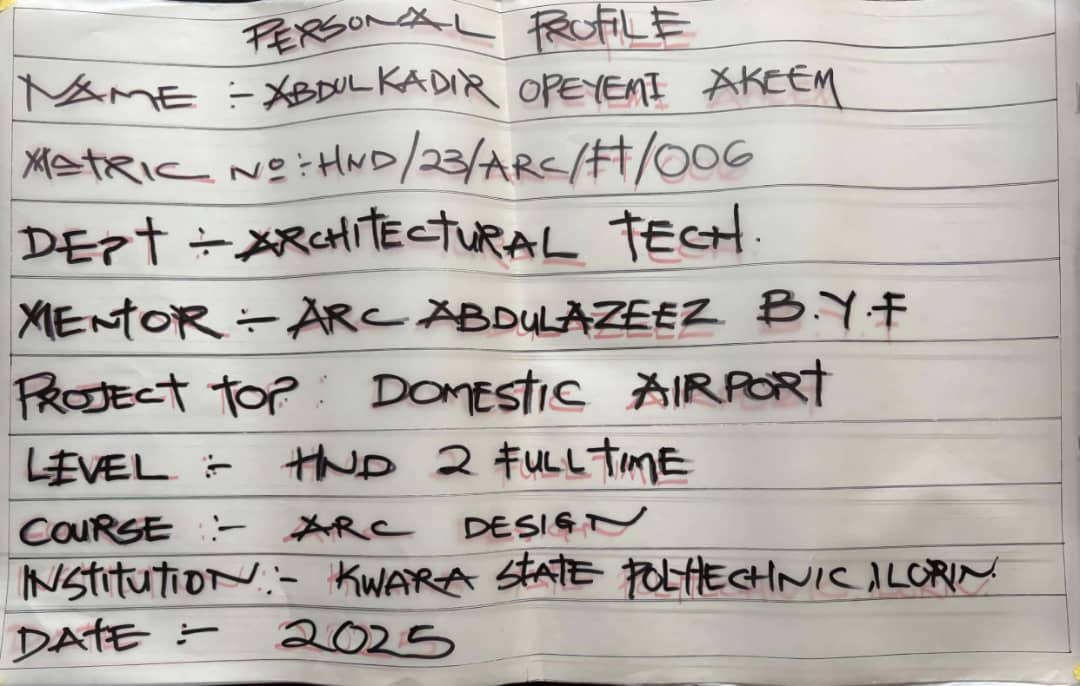 PERSONAL PROFILE
NAME :- ABDULKADIR OPEYEMI AKEEM
MATRIC No :- HND/23/ARC/FT/006
DEPT :- ARCHITECTURAL TECH.
MENTOR :- ARC ABDULAZEEZ B.Y.F
PROJECT TOP : DOMESTIC AIRPORT
LEVEL :- HND 2 FULL TIME
COURSE :- ARC DESIGN
INSTITUTION :- KWARA STATE POLYTECHNIC, ILORIN.
DATE :- 2025